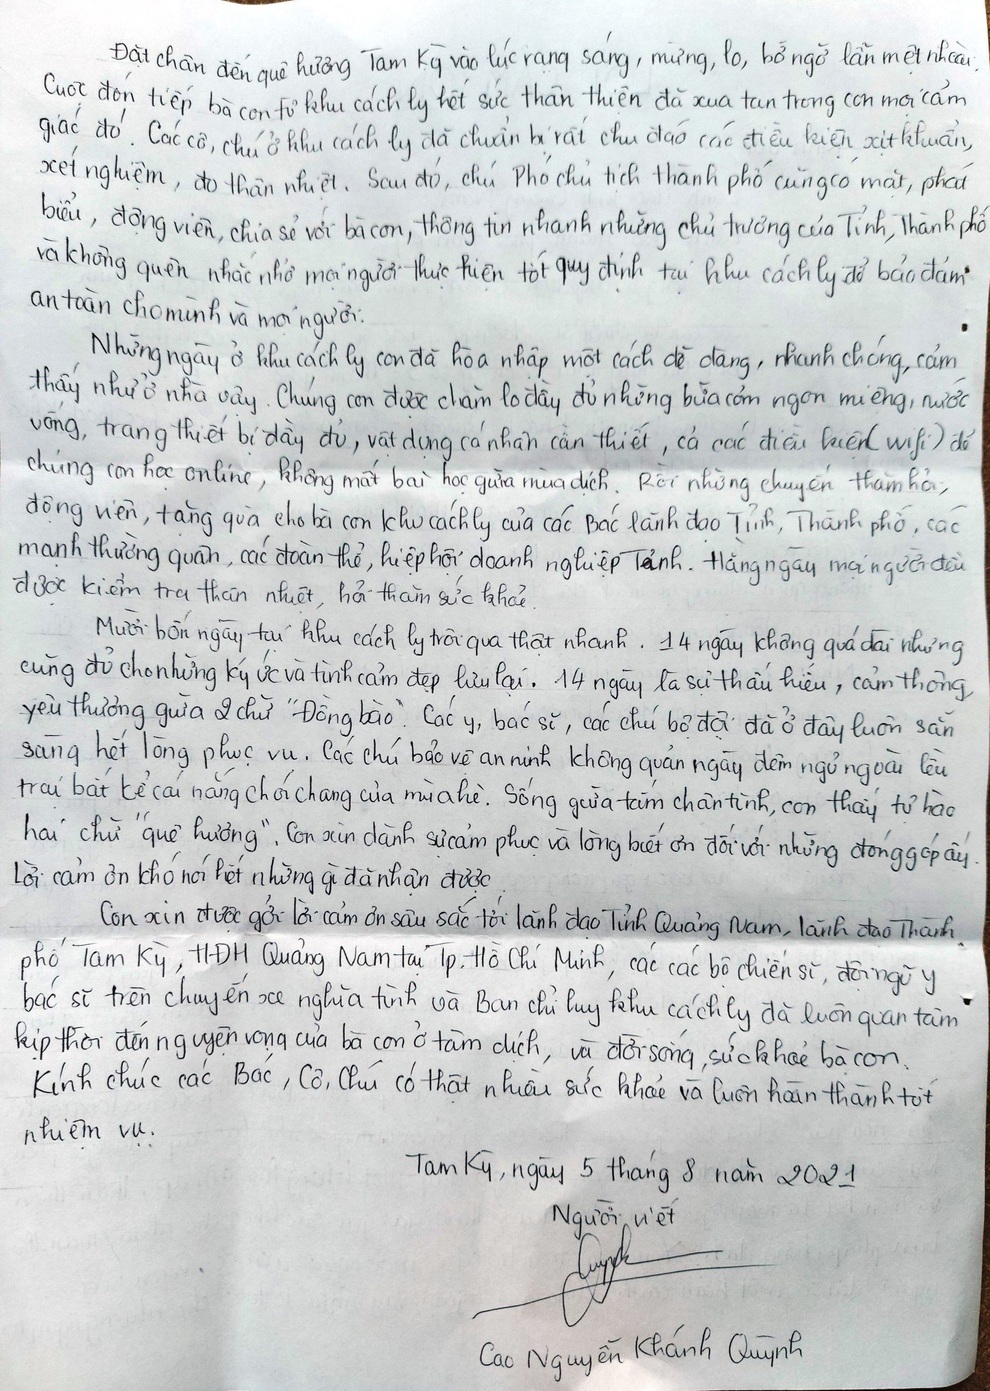 Đặt chân đến quê hương Tam Kỳ vào lúc rạng sáng, mừng, lo, bỡ ngỡ lẫn mệt nhoài.
Cuộc đón tiếp bà con từ khu cách ly hết sức thân thiện đã xua tan trong con mọi cảm
giác đó. Các cô, chú ở khu cách ly đã chuẩn bị rất chu đáo các điều kiện xịt khuẩn,
xét nghiệm, đo thân nhiệt. Sau đó, chú Phó chủ tịch thành phố cũng có mặt, phát
biểu, động viên, chia sẻ với bà con, thông tin nhanh những chủ trương của Tỉnh, Thành phố
và không quên nhắc nhở mọi người thực hiện tốt quy định tại khu cách ly để bảo đảm
an toàn cho mình và mọi người.
Những ngày ở khu cách ly con đã hòa nhập một cách dễ dàng, nhanh chóng, cảm
thấy như ở nhà vậy. Chúng con được chăm lo đầy đủ những bữa cơm ngon miệng, nước
uống, trang thiết bị đầy đủ, vật dụng cá nhân cần thiết, cả các điều kiện (wifi) để
chúng con học online, không mất bài học giữa mùa dịch. Rồi những chuyến thăm hỏi,
động viên, tặng quà cho bà con khu cách ly của các Bác lãnh đạo Tỉnh, Thành phố, các
mạnh thường quân, các đoàn thể, hiệp hội doanh nghiệp Tỉnh. Hằng ngày mọi người đều
được kiểm tra thân nhiệt, hỏi thăm sức khoẻ.
Mười bốn ngày tại khu cách ly trôi qua thật nhanh. 14 ngày không quá dài nhưng
cũng đủ cho những ký ức và tình cảm đẹp lưu lại. 14 ngày là sự thấu hiểu, cảm thông,
yêu thương giữa 2 chữ "Đồng bào". Các y, bác sĩ, các chú bộ đội đã ở đây luôn sẵn
sàng hết lòng phục vụ. Các chú bảo vệ an ninh không quản ngày đêm ngủ ngoài lều
trại bất kể cái nắng chói chang của mùa hè. Sống giữa tấm chân tình, con thấy tự hào
hai chữ "quê hương". Con xin dành sự cảm phục và lòng biết ơn đối với những đóng góp ấy.
Lời cảm ơn khó nói hết những gì đã nhận được.
Con xin được gởi lời cảm ơn sâu sắc tới lãnh đạo Tỉnh Quảng Nam, lãnh đạo Thành
phố Tam Kỳ, HĐH Quảng Nam tại Tp. Hồ Chí Minh, các các bộ chiến sĩ, đội ngũ y
bác sĩ trên chuyến xe nghĩa tình và Ban chỉ huy khu cách ly đã luôn quan tâm
kịp thời đến nguyện vọng của bà con ở tâm dịch, và đời sống, sức khoẻ bà con.
Kính chúc các Bác, Cô, Chú có thật nhiều sức khoẻ và luôn hoàn thành tốt
nhiệm vụ.
Tam Kỳ, ngày 5 tháng 8 năm 2021
Người viết
Quỳnh
Cao Nguyễn Khánh Quỳnh